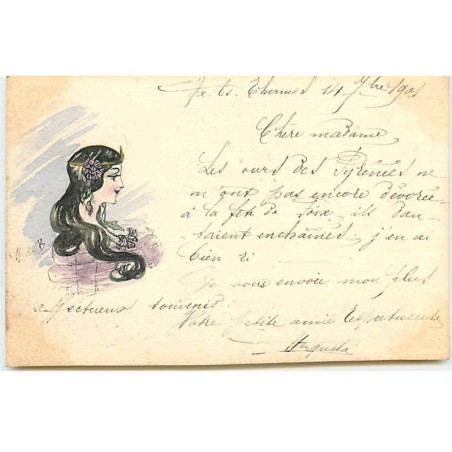 Ax-les-Thermes 14 7bre 1901
Chère madame
Les ours des Pyrénées ne
m'ont pas encore dévorée
à la fête de Foix, ils dan-
saient enchainés, j'en ai
bien ri
Je vous envoie mon plus
affectueux souvenir
Votre petite amie
Augusta